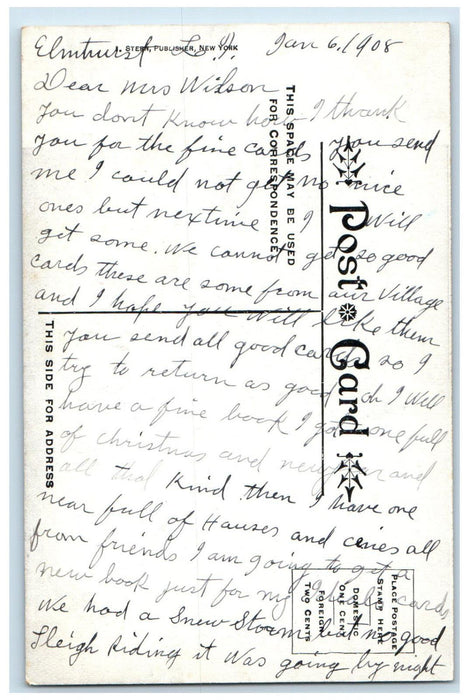 I. STERN, PUBLISHER, NEW YORK
Elmhurst L. I. Jan 6. 1908
Dear Mrs Wilson
You dont Know how I thank
you for the fine cards you send
me I could not get no nice
ones but nextime I will
get some. We cannot get so good
cards these are some from our Village
and I hope you will like them
you send all good cards so I
try to return as good oh I will
have a fine book I got one full
of christmas and new year and
all that Kind then I have one
near full of Houses and all
from friends I am going to get a
new book just for my cards
We had a Snow Storm but no good
Sleigh Riding it was going by night
THIS SPACE MAY BE USED
FOR CORRESPONDENCE
Post Card
THIS SIDE FOR ADDRESS
PLACE POSTAGE
STAMP HERE
DOMESTIC
ONE CENT
FOREIGN
TWO CENTS